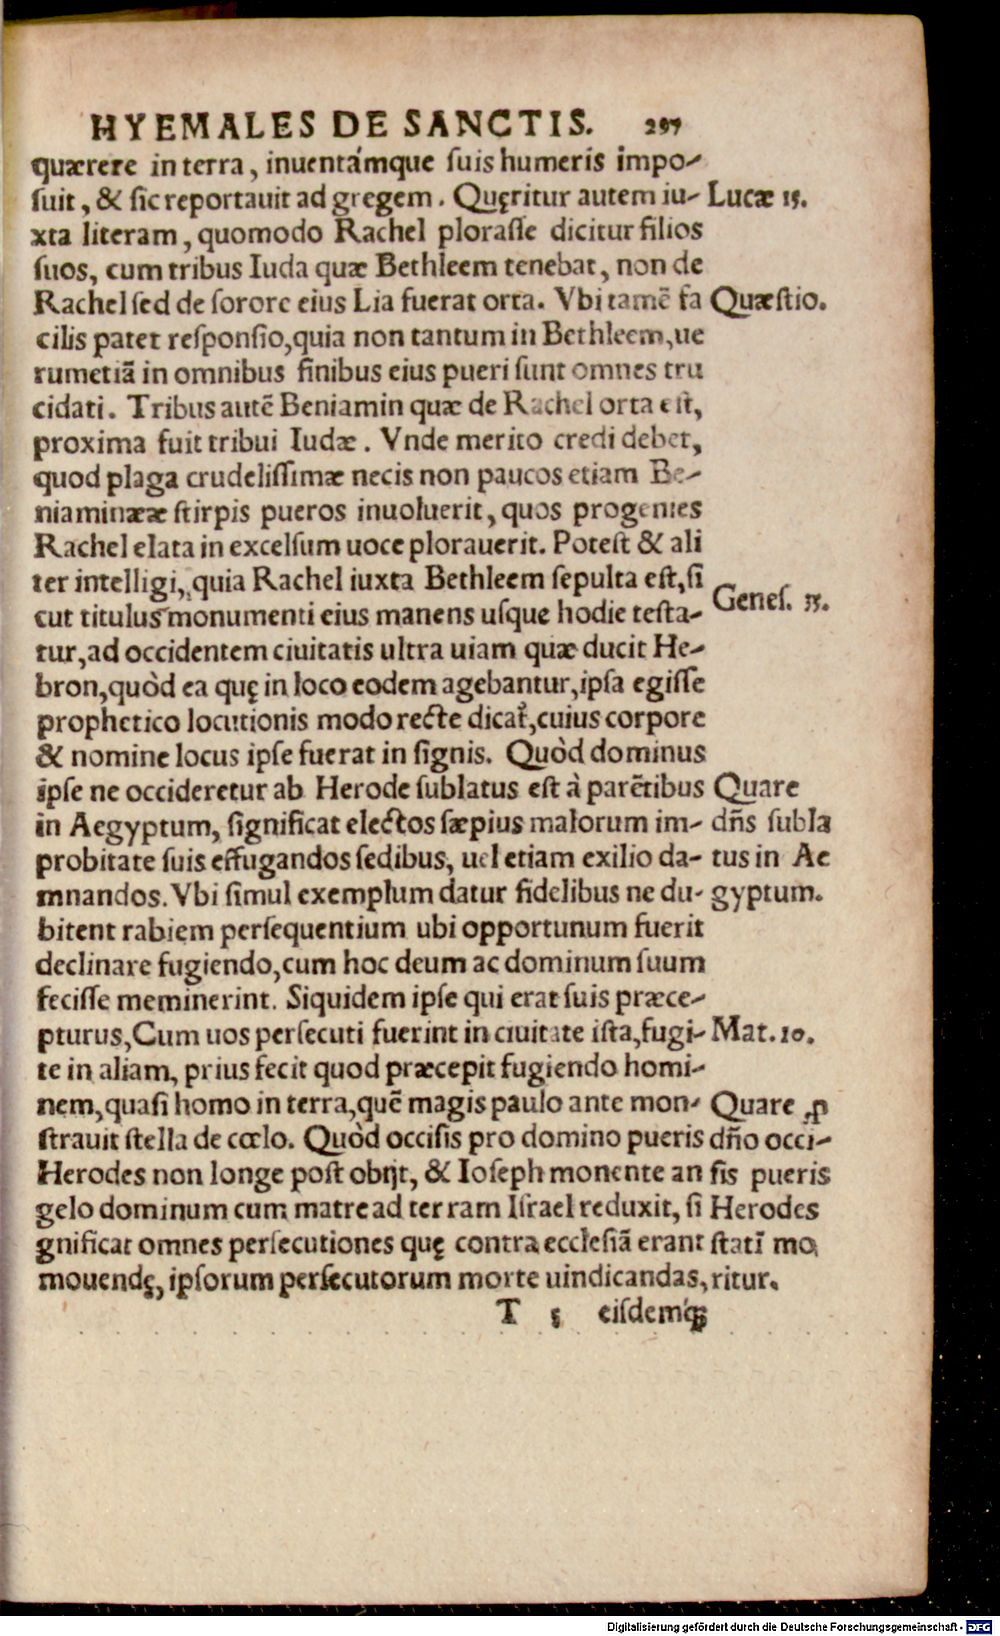 HYEMALES DE SANCTIS. 297
quærere in terra, inuentámque suis humeris impo-
suit, & sic reportauit ad gregem. Quęritur autem iu- Lucæ 15.
xta literam, quomodo Rachel plorasse dicitur filios
suos, cum tribus Iuda quæ Bethleem tenebat, non de
Rachel sed de sorore eius Lia fuerat orta. Vbi tamẽ fa Quæstio.
cilis patet responsio, quia non tantum in Bethleem, ue
rumetiã in omnibus finibus eius pueri sunt omnes tru
cidati. Tribus autẽ Beniamin quæ de Rachel orta est,
proxima fuit tribui Iudæ. Vnde merito credi debet,
quod plaga crudelissimæ necis non paucos etiam Be-
niaminææ stirpis pueros inuoluerit, quos progenies
Rachel elata in excelsum uoce plorauerit. Potest & ali
ter intelligi, quia Rachel iuxta Bethleem sepulta est, si
cut titulus monumenti eius manens usque hodie testa- Genes. 35.
tur, ad occidentem ciuitatis ultra uiam quæ ducit He-
bron, quòd ea quę in loco eodem agebantur, ipsa egisse
prophetico locutionis modo recte dicat᷑, cuius corpore
& nomine locus ipse fuerat in signis. Quòd dominus
ipse ne occideretur ab Herode sublatus est à parẽtibus Quare
in Aegyptum, significat electos sæpius malorum im- dñs subla
probitate suis effugandos sedibus, uel etiam exilio da- tus in Ae
mnandos. Vbi simul exemplum datur fidelibus ne du- gyptum.
bitent rabiem persequentium ubi opportunum fuerit
declinare fugiendo, cum hoc deum ac dominum suum
fecisse meminerint. Siquidem ipse qui erat suis præce-
pturus, Cum uos persecuti fuerint in ciuitate ista, fugi- Mat. 10.
te in aliam, prius fecit quod præcepit fugiendo homi-
nem, quasi homo in terra, quẽ magis paulo ante mon- Quare ꝓ
strauit stella de cœlo. Quòd occisis pro domino pueris dño occi-
Herodes non longe post obijt, & Ioseph monente an sis pueris
gelo dominum cum matre ad terram Israel reduxit, si Herodes
gnificat omnes persecutiones quę contra ecclesiã erant statĩ mo
mouendę, ipsorum persecutorum morte uindicandas, ritur.
T 5 eisdemq́ꝫ
Digitalisierung gefördert durch die Deutsche Forschungsgemeinschaft - DFG